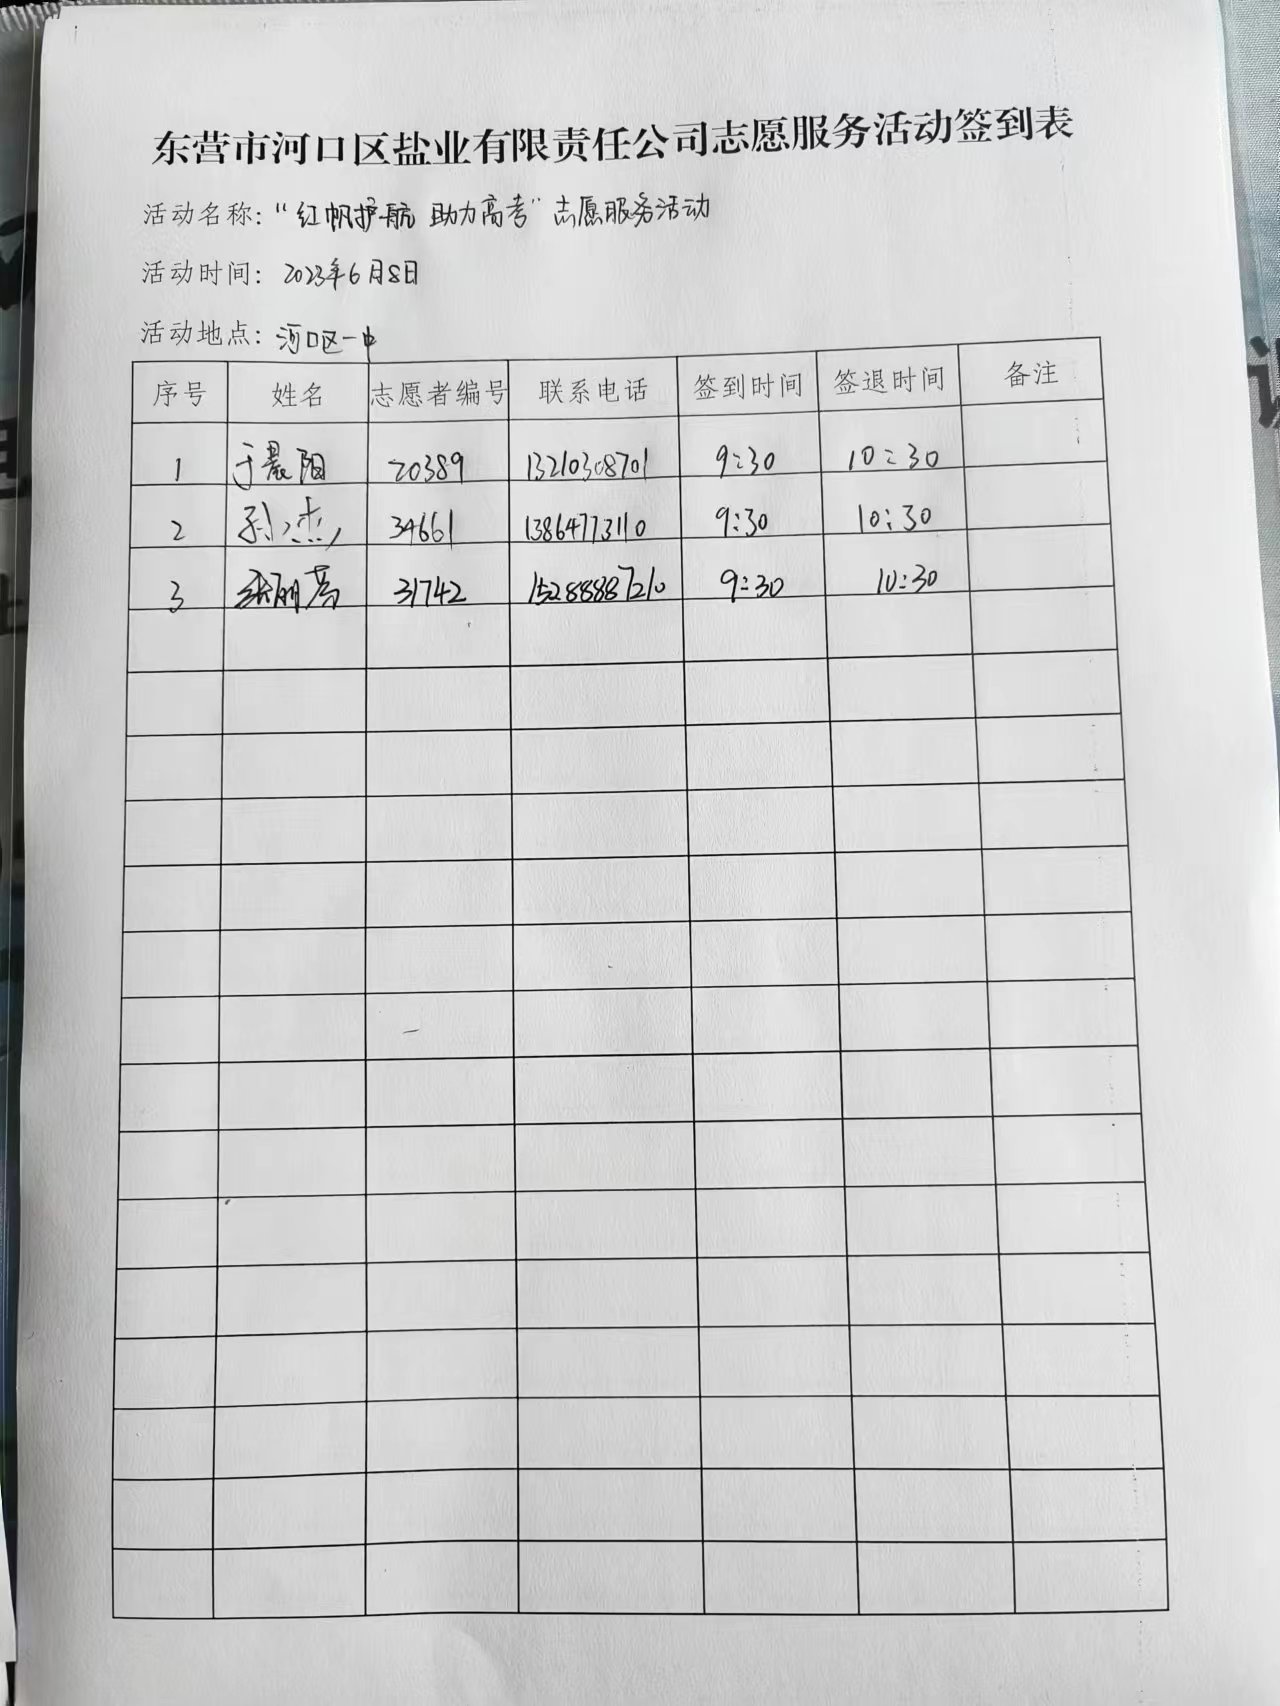 东营市河口区盐业有限责任公司志愿服务活动签到表
活动名称：“红帆护航 助力高考”志愿服务活动
活动时间：2023年6月8日
活动地点：河口区一中
序号 姓名 志愿者编号 联系电话 签到时间 签退时间 备注
1 于晨阳 20389 13210308701 9:30 10:30
2 孙杰 34661 13864773110 9:30 10:30
3 31742 15288887210 9:30 10:30